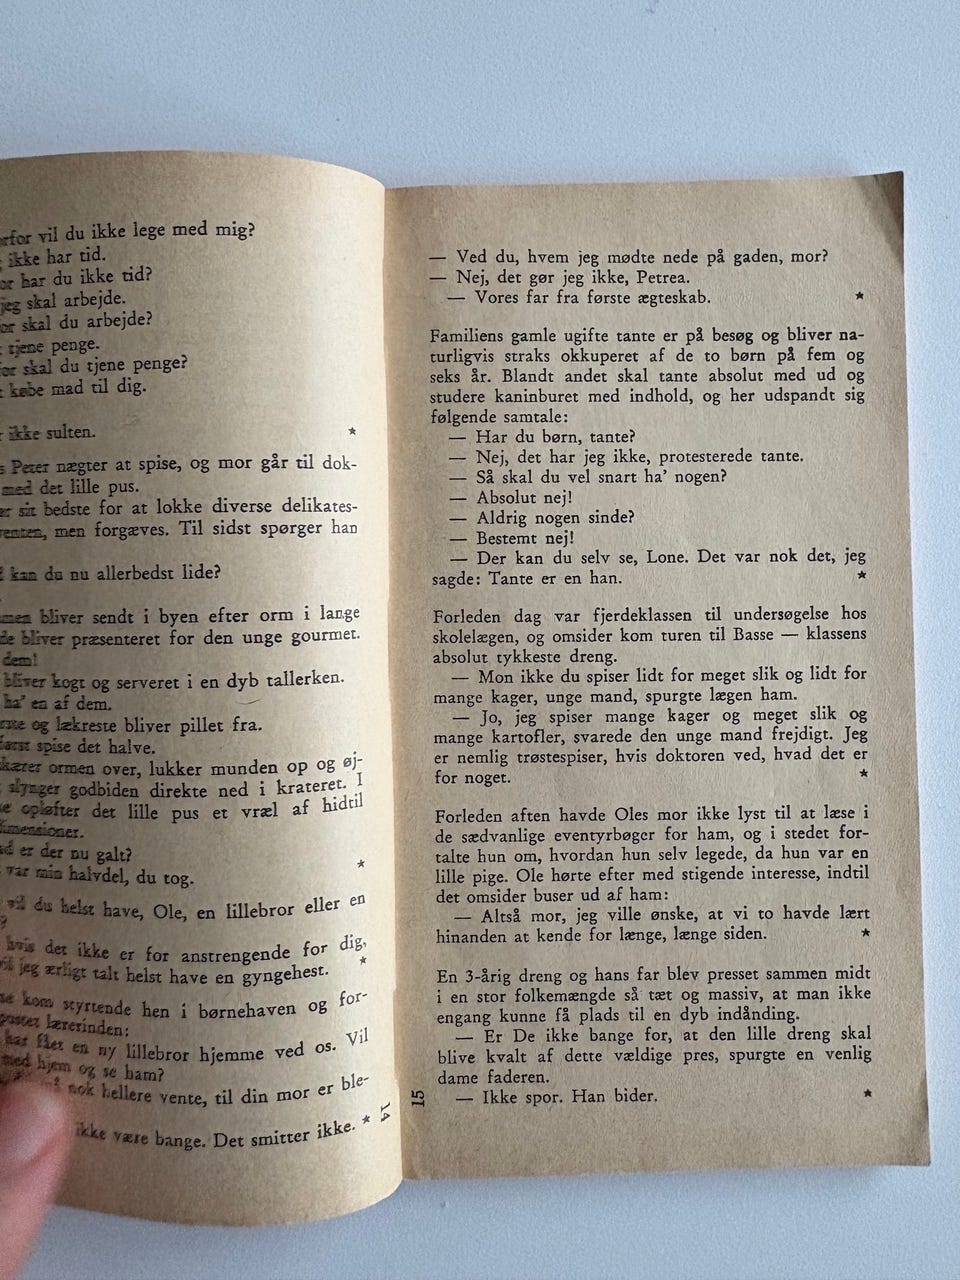 vil du ikke lege med mig?
ikke har tid.
har du ikke tid?
jeg skal arbejde.
skal du arbejde?
tjene penge.
skal du tjene penge?
købe mad til dig.
ikke sulten. *
Peter nægter at spise, og mor går til dok-
med det lille pus.
sit bedste for at lokke diverse delikates-
men forgæves. Til sidst spørger han
kan du nu allerbedst lide?
bliver sendt i byen efter orm i lange
bliver præsenteret for den unge gourmet.
dem!
bliver kogt og serveret i en dyb tallerken.
ha' en af dem.
og lækreste bliver pillet fra.
først spise det halve.
ormen over, lukker munden op og øj-
slynger godbiden direkte ned i krateret. I
opløfter det lille pus et vræl af hidtil
dimensioner.
er der nu galt?
var min halvdel, du tog. *
vil du helst have, Ole, en lillebror eller en
hvis det ikke er for anstrengende for dig,
jeg ærligt talt helst have en gyngehest. *
kom styrtende hen i børnehaven og for-
lærerinden:
har fået en ny lillebror hjemme ved os. Vil
med hjem og se ham?
nok hellere vente, til din mor er ble-
ikke være bange. Det smitter ikke. *
14
— Ved du, hvem jeg mødte nede på gaden, mor?
— Nej, det gør jeg ikke, Petrea.
— Vores far fra første ægteskab. *
Familiens gamle ugifte tante er på besøg og bliver na-
turligvis straks okkuperet af de to børn på fem og
seks år. Blandt andet skal tante absolut med ud og
studere kaninburet med indhold, og her udspandt sig
følgende samtale:
— Har du børn, tante?
— Nej, det har jeg ikke, protesterede tante.
— Så skal du vel snart ha' nogen?
— Absolut nej!
— Aldrig nogen sinde?
— Bestemt nej!
— Der kan du selv se, Lone. Det var nok det, jeg
sagde: Tante er en han. *
Forleden dag var fjerdeklassen til undersøgelse hos
skolelægen, og omsider kom turen til Basse — klassens
absolut tykkeste dreng.
— Mon ikke du spiser lidt for meget slik og lidt for
mange kager, unge mand, spurgte lægen ham.
— Jo, jeg spiser mange kager og meget slik og
mange kartofler, svarede den unge mand frejdigt. Jeg
er nemlig trøstespiser, hvis doktoren ved, hvad det er
for noget. *
Forleden aften havde Oles mor ikke lyst til at læse i
de sædvanlige eventyrbøger for ham, og i stedet for-
talte hun om, hvordan hun selv legede, da hun var en
lille pige. Ole hørte efter med stigende interesse, indtil
det omsider buser ud af ham:
— Altså mor, jeg ville ønske, at vi to havde lært
hinanden at kende for længe, længe siden. *
En 3-årig dreng og hans far blev presset sammen midt
i en stor folkemængde så tæt og massiv, at man ikke
engang kunne få plads til en dyb indånding.
— Er De ikke bange for, at den lille dreng skal
blive kvalt af dette vældige pres, spurgte en venlig
dame faderen.
— Ikke spor. Han bider. *
15